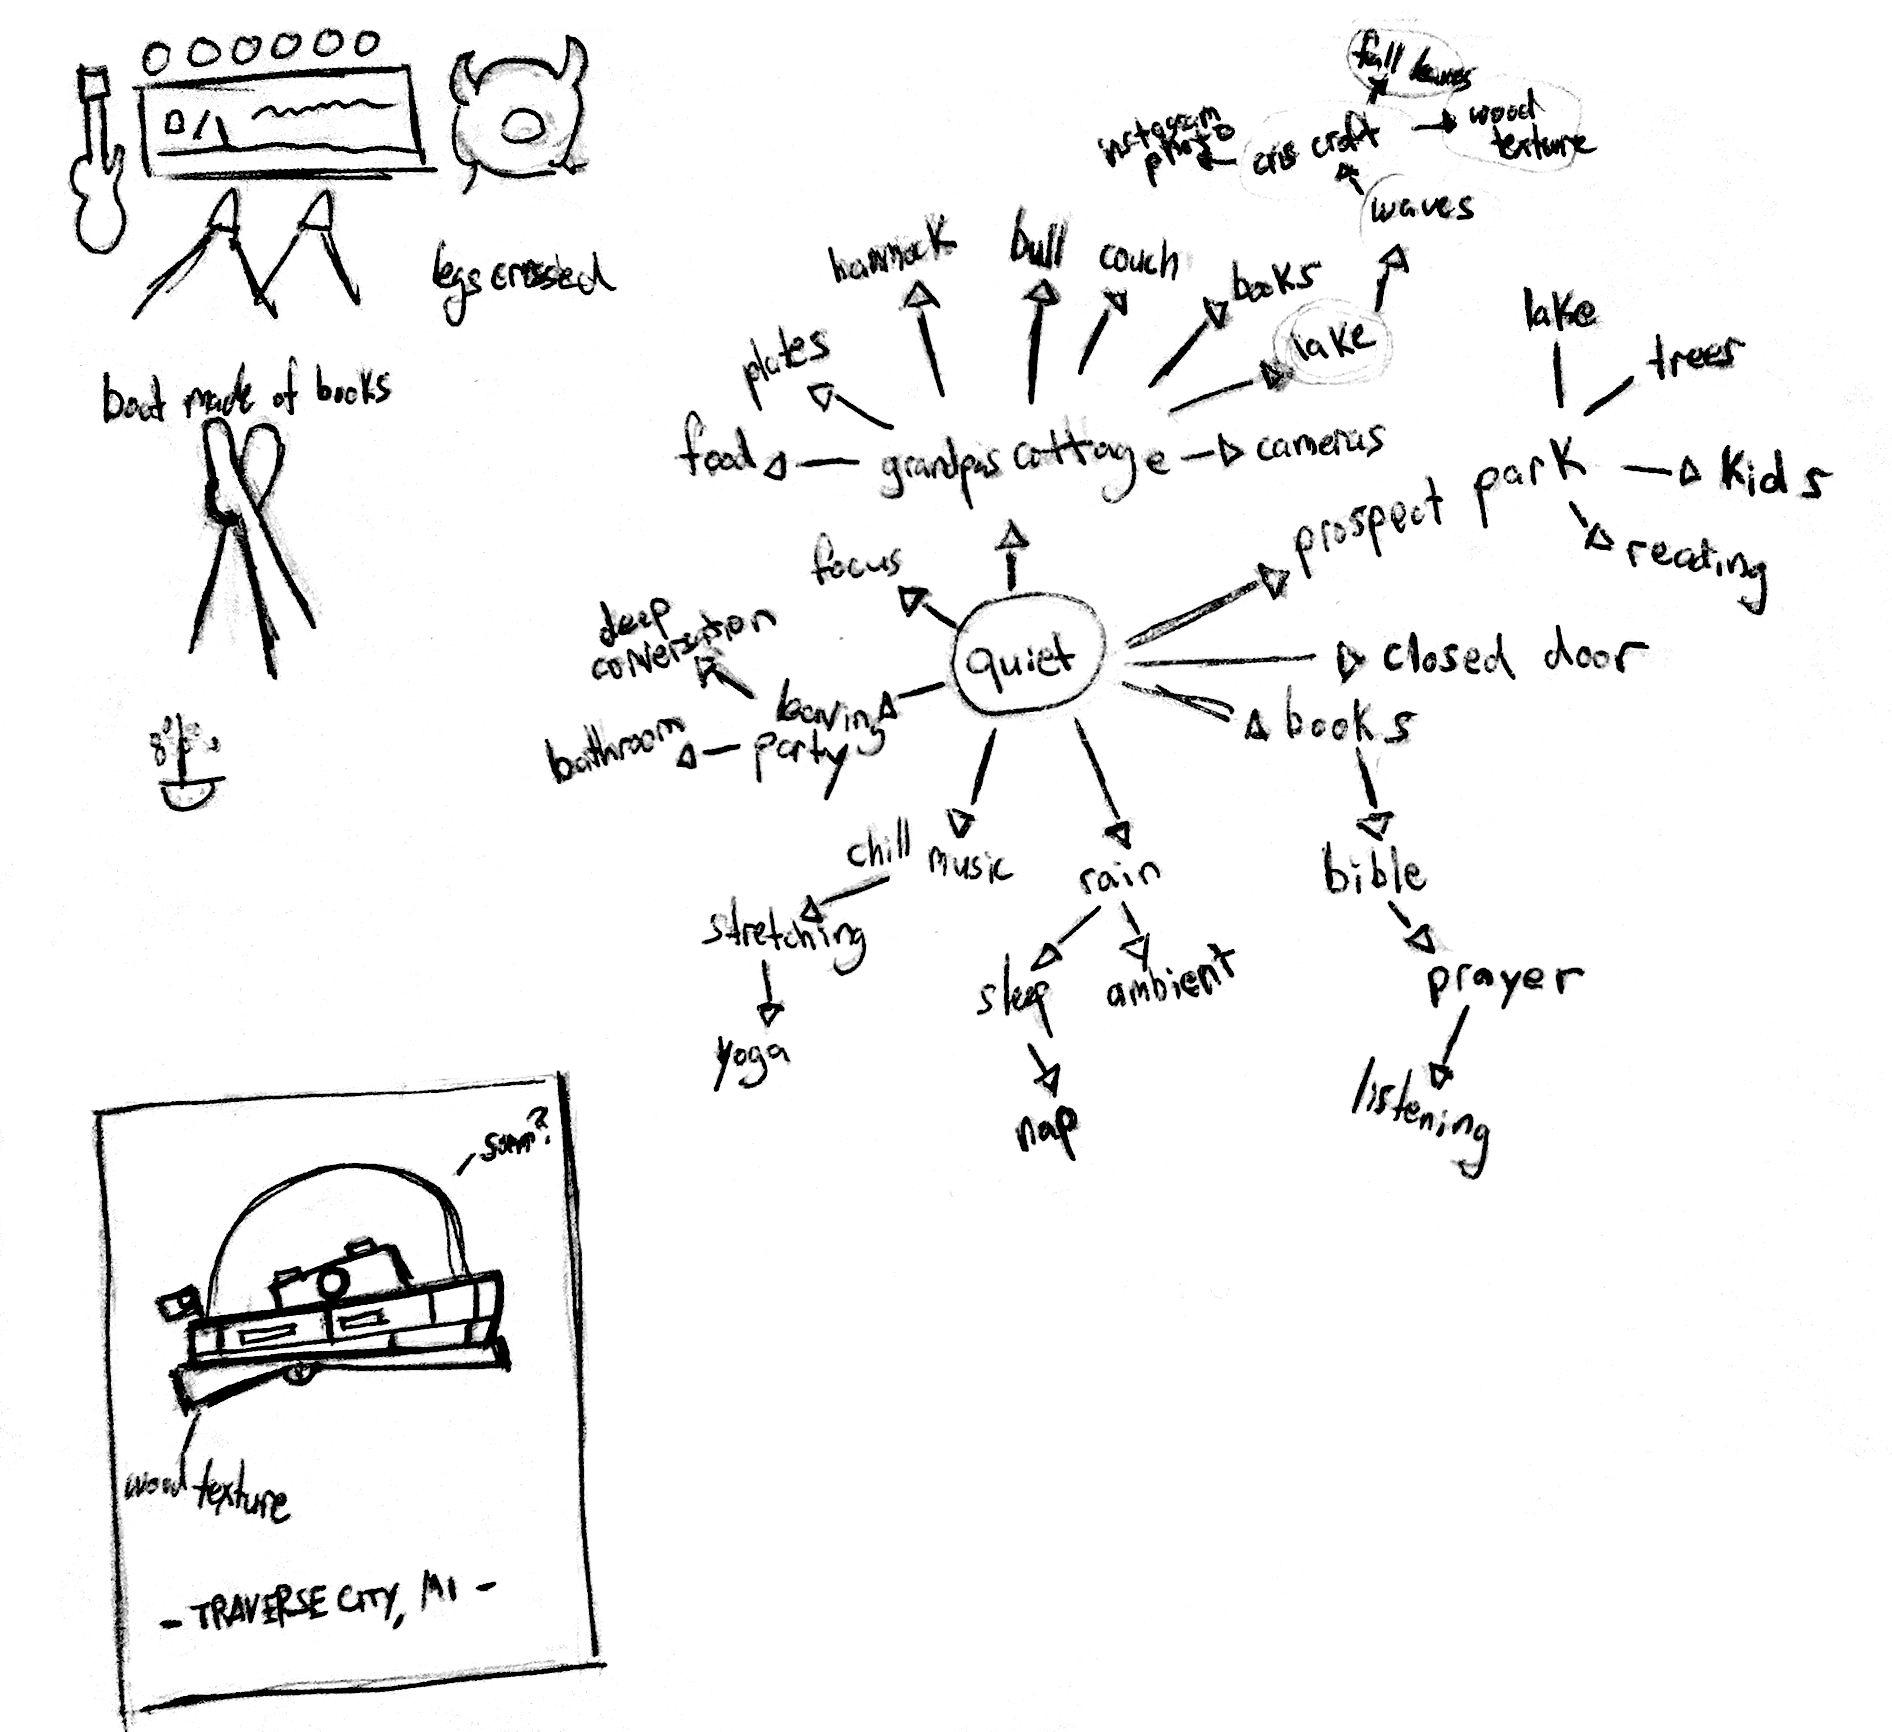 legs crossed
boat made of books
fall leaves
wood
texture
instagram
photo
cris craft
waves
hammock
bull
couch
books
lake
plates
food
grandpas cottage
cameras
lake
trees
prospect park
kids
reading
focus
deep
conversation
quiet
closed door
leaving
party
bathroom
books
chill music
rain
bible
stretching
sleep
ambient
prayer
yoga
nap
listening
wood texture
- TRAVERSE CITY, MI -